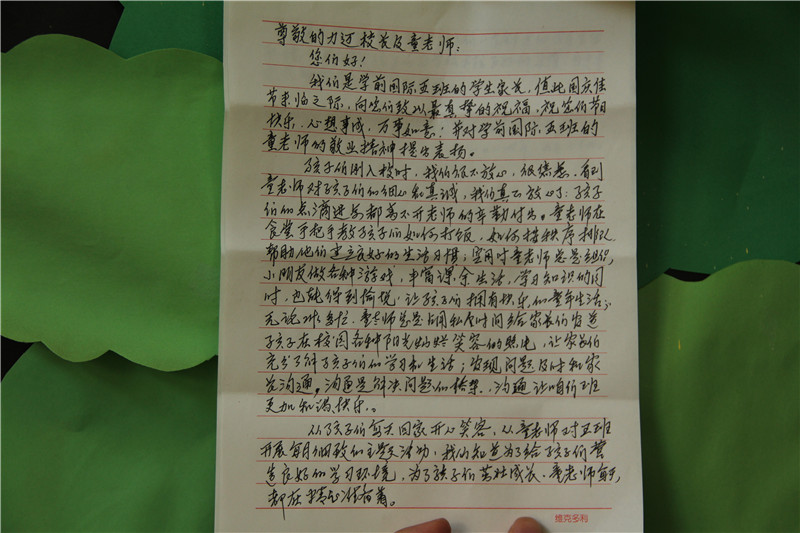 尊敬的力迈校长及童老师:
您们好!
我们是学前国际五班的学生家长,值此国庆佳
节来临之际,向您们致以最真挚的祝福,祝您们节日
快乐,心想事成,万事如意!并对学前国际五班的
童老师的敬业精神提出表扬。
孩子们刚入校时,我们很不放心,很焦虑,看到
童老师对孩子们的细心和真诚,我们真心放心了;孩子
们的点滴进步都离不开老师的辛勤付出。童老师在
食堂手把手教孩子们如何打饭,如何按秩序排队
帮助他们建立良好的生活习惯;空闲时童老师总是组织
小朋友做各种游戏,丰富课余生活,学习知识的同
时,也能得到愉悦,让孩子们拥有快乐的童年生活;
无论班多忙,童老师总是占用私人时间给家长们发送
孩子在校园各种阳光灿烂笑容的照片,让家长们
充分了解孩子们的学习和生活;发现问题及时和家
长沟通,沟通是解决问题的桥梁,沟通让咱们班
更加和谐、快乐。
从孩子们每天回家开心笑容,从童老师对五班
开展每日细致的主题活动,我们知道为了给孩子们营
造良好的学习环境,为了孩子们茁壮成长,童老师每天
都在精心保育着。
维克多利